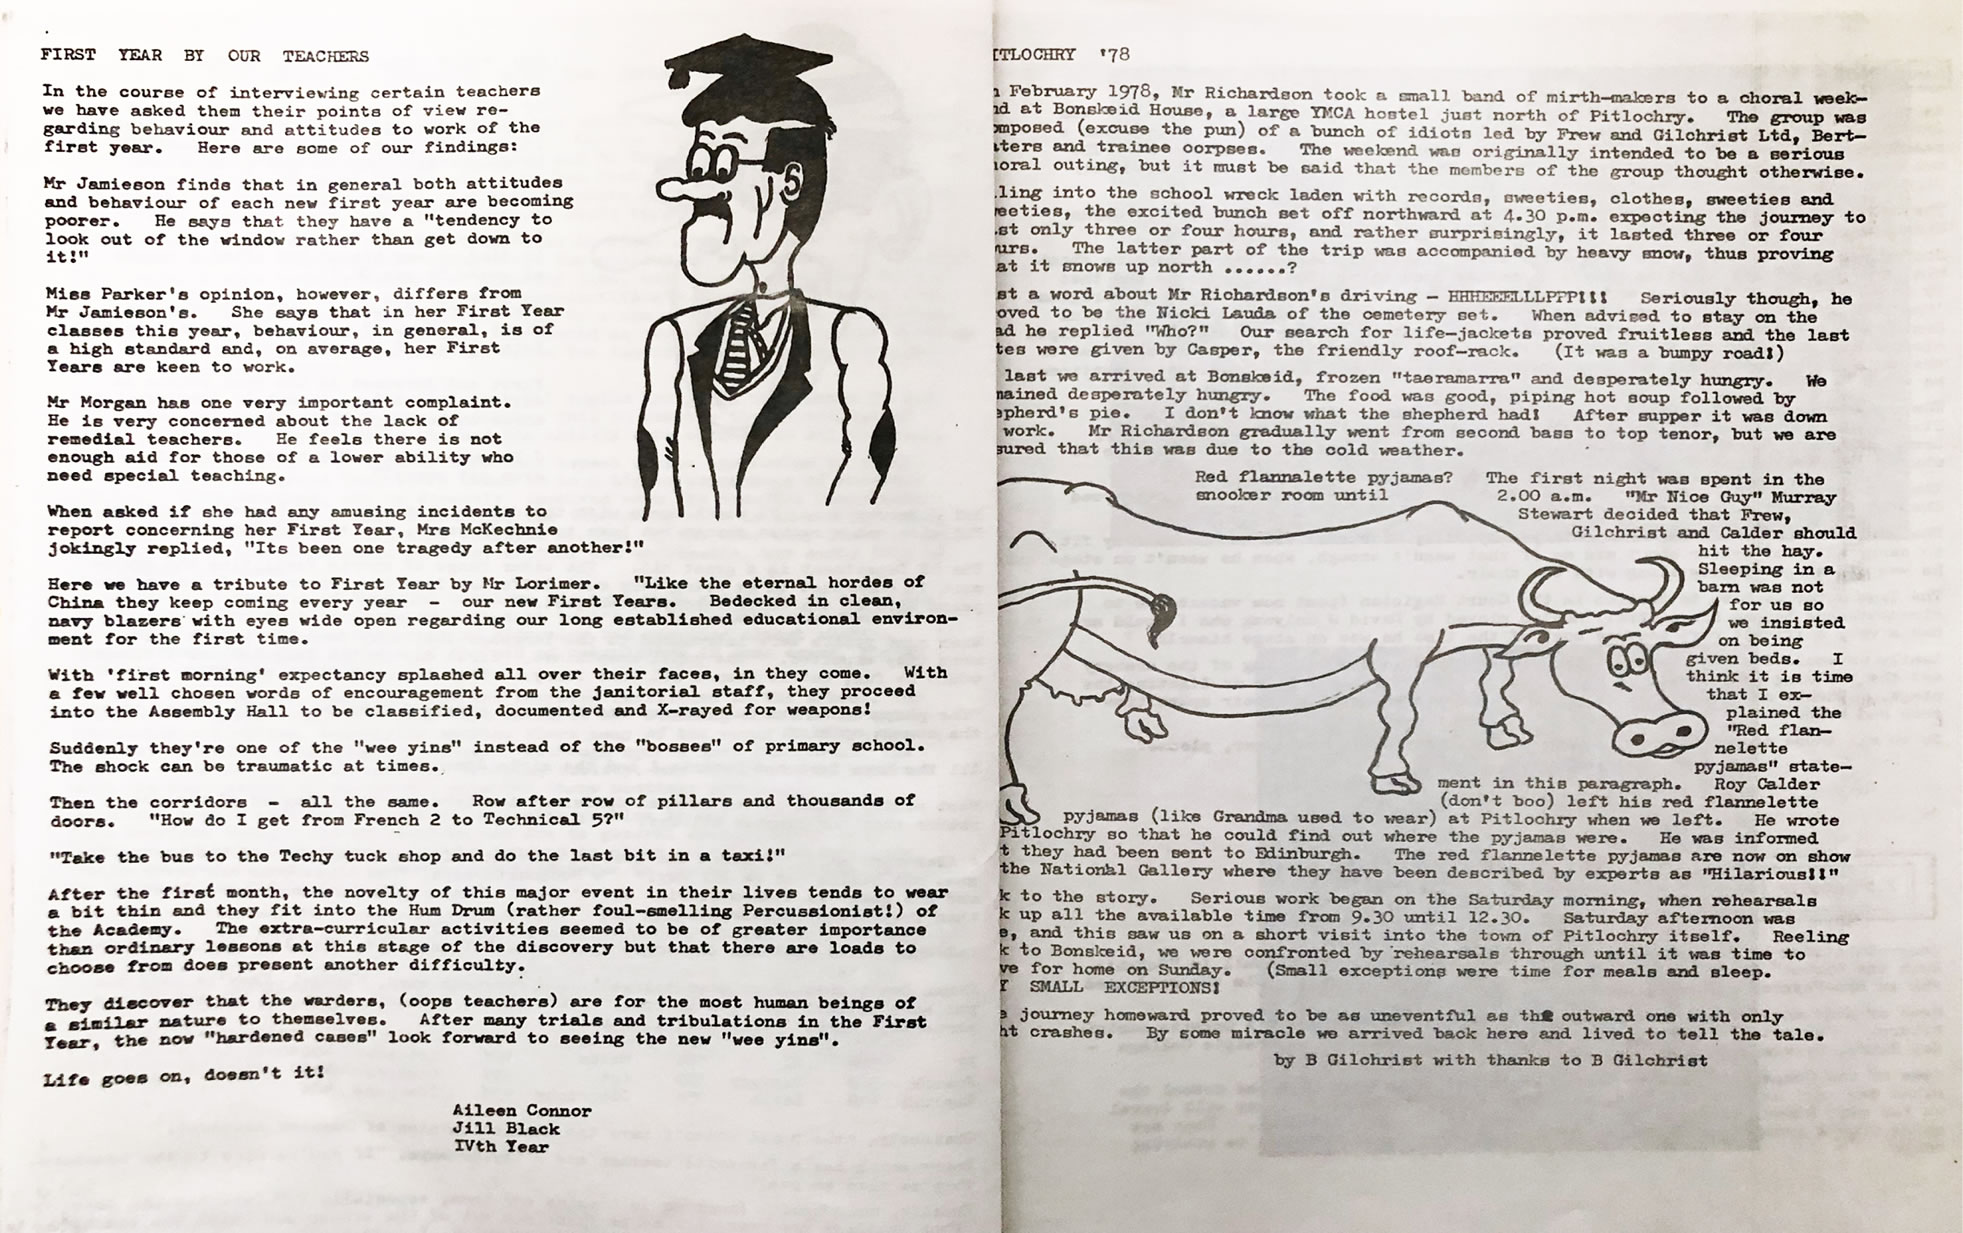 FIRST YEAR BY OUR TEACHERS
In the course of interviewing certain teachers
we have asked them their points of view re-
garding behaviour and attitudes to work of the
first year. Here are some of our findings:
Mr Jamieson finds that in general both attitudes
and behaviour of each new first year are becoming
poorer. He says that they have a "tendency to
look out of the window rather than get down to
it!"
Miss Parker's opinion, however, differs from
Mr Jamieson's. She says that in her First Year
classes this year, behaviour, in general, is of
a high standard and, on average, her First
Years are keen to work.
Mr Morgan has one very important complaint.
He is very concerned about the lack of
remedial teachers. He feels there is not
enough aid for those of a lower ability who
need special teaching.
When asked if she had any amusing incidents to
report concerning her First Year, Mrs McKechnie
jokingly replied, "Its been one tragedy after another!"
Here we have a tribute to First Year by Mr Lorimer. "Like the eternal hordes of
China they keep coming every year - our new First Years. Bedecked in clean,
navy blazers with eyes wide open regarding our long established educational environ-
ment for the first time.
With 'first morning' expectancy splashed all over their faces, in they come. With
a few well chosen words of encouragement from the janitorial staff, they proceed
into the Assembly Hall to be classified, documented and X-rayed for weapons!
Suddenly they're one of the "wee yins" instead of the "bosses" of primary school.
The shock can be traumatic at times.
Then the corridors - all the same. Row after row of pillars and thousands of
doors. "How do I get from French 2 to Technical 5?"
"Take the bus to the Techy tuck shop and do the last bit in a taxi!"
After the first month, the novelty of this major event in their lives tends to wear
a bit thin and they fit into the Hum Drum (rather foul-smelling Percussionist!) of
the Academy. The extra-curricular activities seemed to be of greater importance
than ordinary lessons at this stage of the discovery but that there are loads to
choose from does present another difficulty.
They discover that the warders, (oops teachers) are for the most human beings of
a similar nature to themselves. After many trials and tribulations in the First
Year, the now "hardened cases" look forward to seeing the new "wee yins".
Life goes on, doesn't it!
Aileen Connor
Jill Black
IVth Year
ITLOCHRY '78
February 1978, Mr Richardson took a small band of mirth-makers to a choral week-
nd at Bonskeid House, a large YMCA hostel just north of Pitlochry. The group was
mposed (excuse the pun) of a bunch of idiots led by Frew and Gilchrist Ltd, Bert-
ters and trainee oorpses. The weekend was originally intended to be a serious
oral outing, but it must be said that the members of the group thought otherwise.
ling into the school wreck laden with records, sweeties, clothes, sweeties and
eeties, the excited bunch set off northward at 4.30 p.m. expecting the journey to
st only three or four hours, and rather surprisingly, it lasted three or four
urs. The latter part of the trip was accompanied by heavy snow, thus proving
at it snows up north ......?
st a word about Mr Richardson's driving - HHHEEELLLPPP!!! Seriously though, he
oved to be the Nicki Lauda of the cemetery set. When advised to stay on the
ad he replied "Who?" Our search for life-jackets proved fruitless and the last
tes were given by Casper, the friendly roof-rack. (It was a bumpy road!)
last we arrived at Bonskeid, frozen "taeramarra" and desperately hungry. We
mained desperately hungry. The food was good, piping hot soup followed by
epherd's pie. I don't know what the shepherd had! After supper it was down
work. Mr Richardson gradually went from second bass to top tenor, but we are
sured that this was due to the cold weather.
Red flannalette pyjamas? The first night was spent in the
snooker room until 2.00 a.m. "Mr Nice Guy" Murray
Stewart decided that Frew,
Gilchrist and Calder should
hit the hay.
Sleeping in a
barn was not
for us so
we insisted
on being
given beds. I
think it is time
that I ex-
plained the
"Red flan-
nelette
pyjamas" state-
ment in this paragraph. Roy Calder
(don't boo) left his red flannelette
pyjamas (like Grandma used to wear) at Pitlochry when we left. He wrote
Pitlochry so that he could find out where the pyjamas were. He was informed
t they had been sent to Edinburgh. The red flannelette pyjamas are now on show
the National Gallery where they have been described by experts as "Hilarious!!"
k to the story. Serious work began on the Saturday morning, when rehearsals
k up all the available time from 9.30 until 12.30. Saturday afternoon was
e, and this saw us on a short visit into the town of Pitlochry itself. Reeling
k to Bonskeid, we were confronted by rehearsals through until it was time to
ve for home on Sunday. (Small exceptions were time for meals and sleep.
Y SMALL EXCEPTIONS!
e journey homeward proved to be as uneventful as the outward one with only
ht crashes. By some miracle we arrived back here and lived to tell the tale.
by B Gilchrist with thanks to B Gilchrist